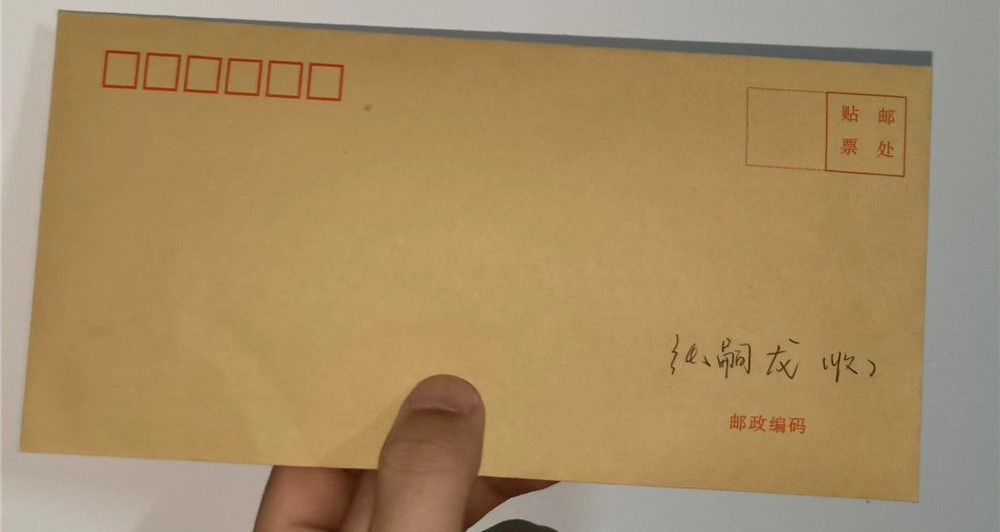 贴 邮
票 处
张嗣龙（收）
邮政编码